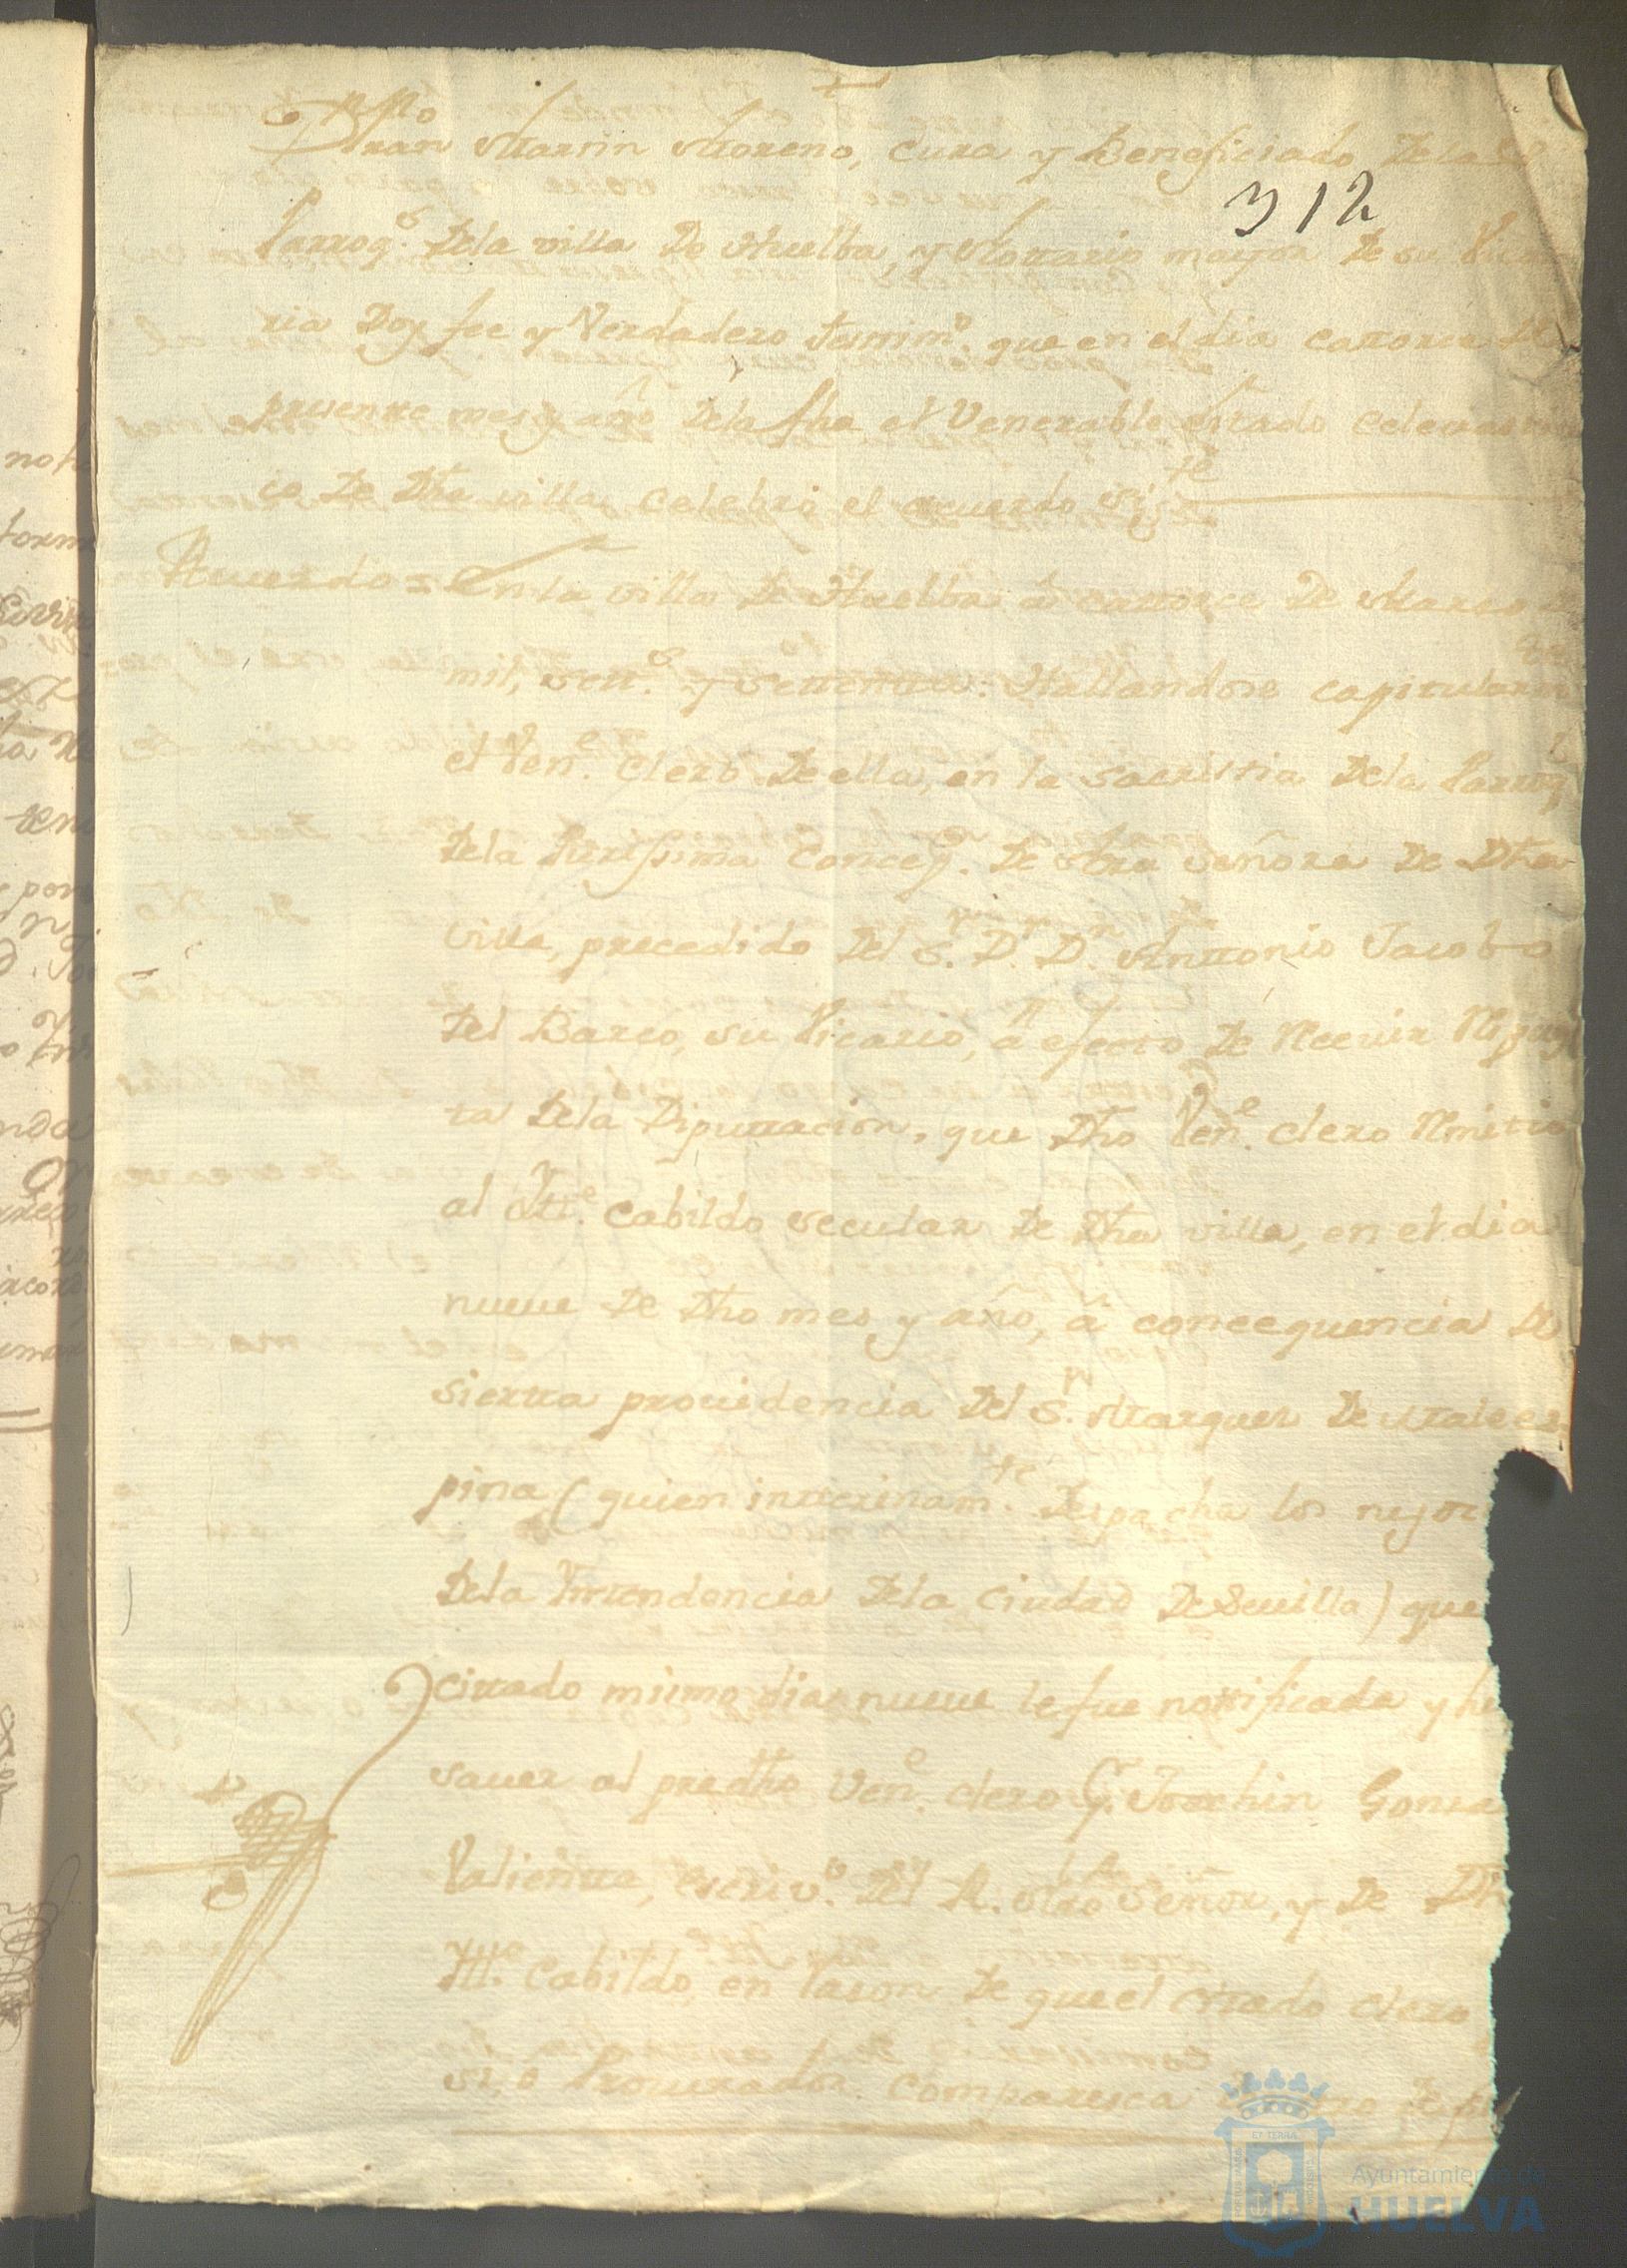 +
Fran Martin Moreno, Cura y Beneficiado de las
312
Parroq.s dela villa de Huelba, y Nottario mayor de su Vica
ria Doy fee y Verdadero testim.o que en el dia cattorce de
presente mes y año dela fha el Venerable estado eclesiasti
co de dha villa celebró el acuerdo sig.te
Acuerdo = En la villa de Huelba â cattorce de Marzo de
mil, sett.s y settentta: Hallandose capitularm.te
el Ven.e clero de ella, en la sacristia dela Parroq.l
dela Purissima Concep.n de Ntra Señora de dha
villa, precedido del S.r D.r D.n Anttonio Jacobo
del Barco, su Vicario, â efecto de Recivir Respues
ta dela Diputtacion, que dho Ven.e clero Remitio
al Itt.e Cabildo secular de dha villa, en el dia
nueve de dho mes y año, â concequencia de
sierta providencia del S.r Marques de Malaes
pina (quien intterinam.te despacha los negoc
dela Inttendencia dela Ciudad de Sevilla) que
cittado mismo dia nueve le fue nottificada y hi
saver al predho Ven.e clero p.r Joachin Gonsa
Valientte, escriv.o del R. Ntro Señor, y de dh
Ill.e Cabildo, en rason de que el cittado clero
si, o Procurador comparesca
Ayuntamiento de
HUELVA